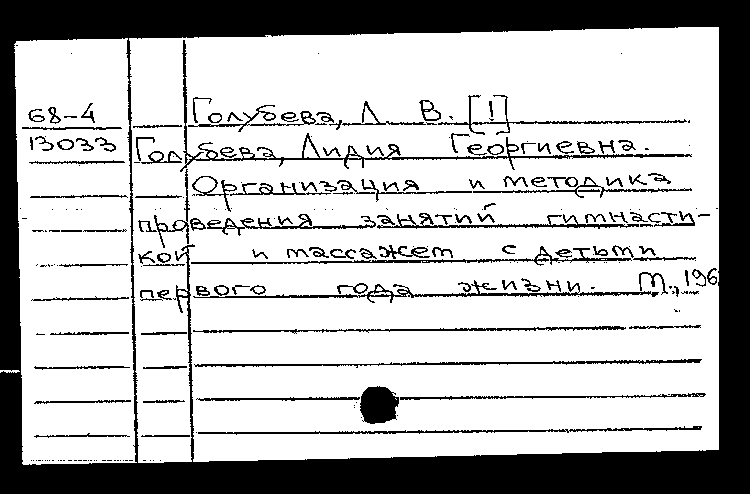 68-4
13033
Голубева, Л. В. [!]
Голубева, Лидия Георгиевна.
Организация и методика
проведения занятий гимнасти-
кой и массажем с детьми
первого года жизни. М., 196